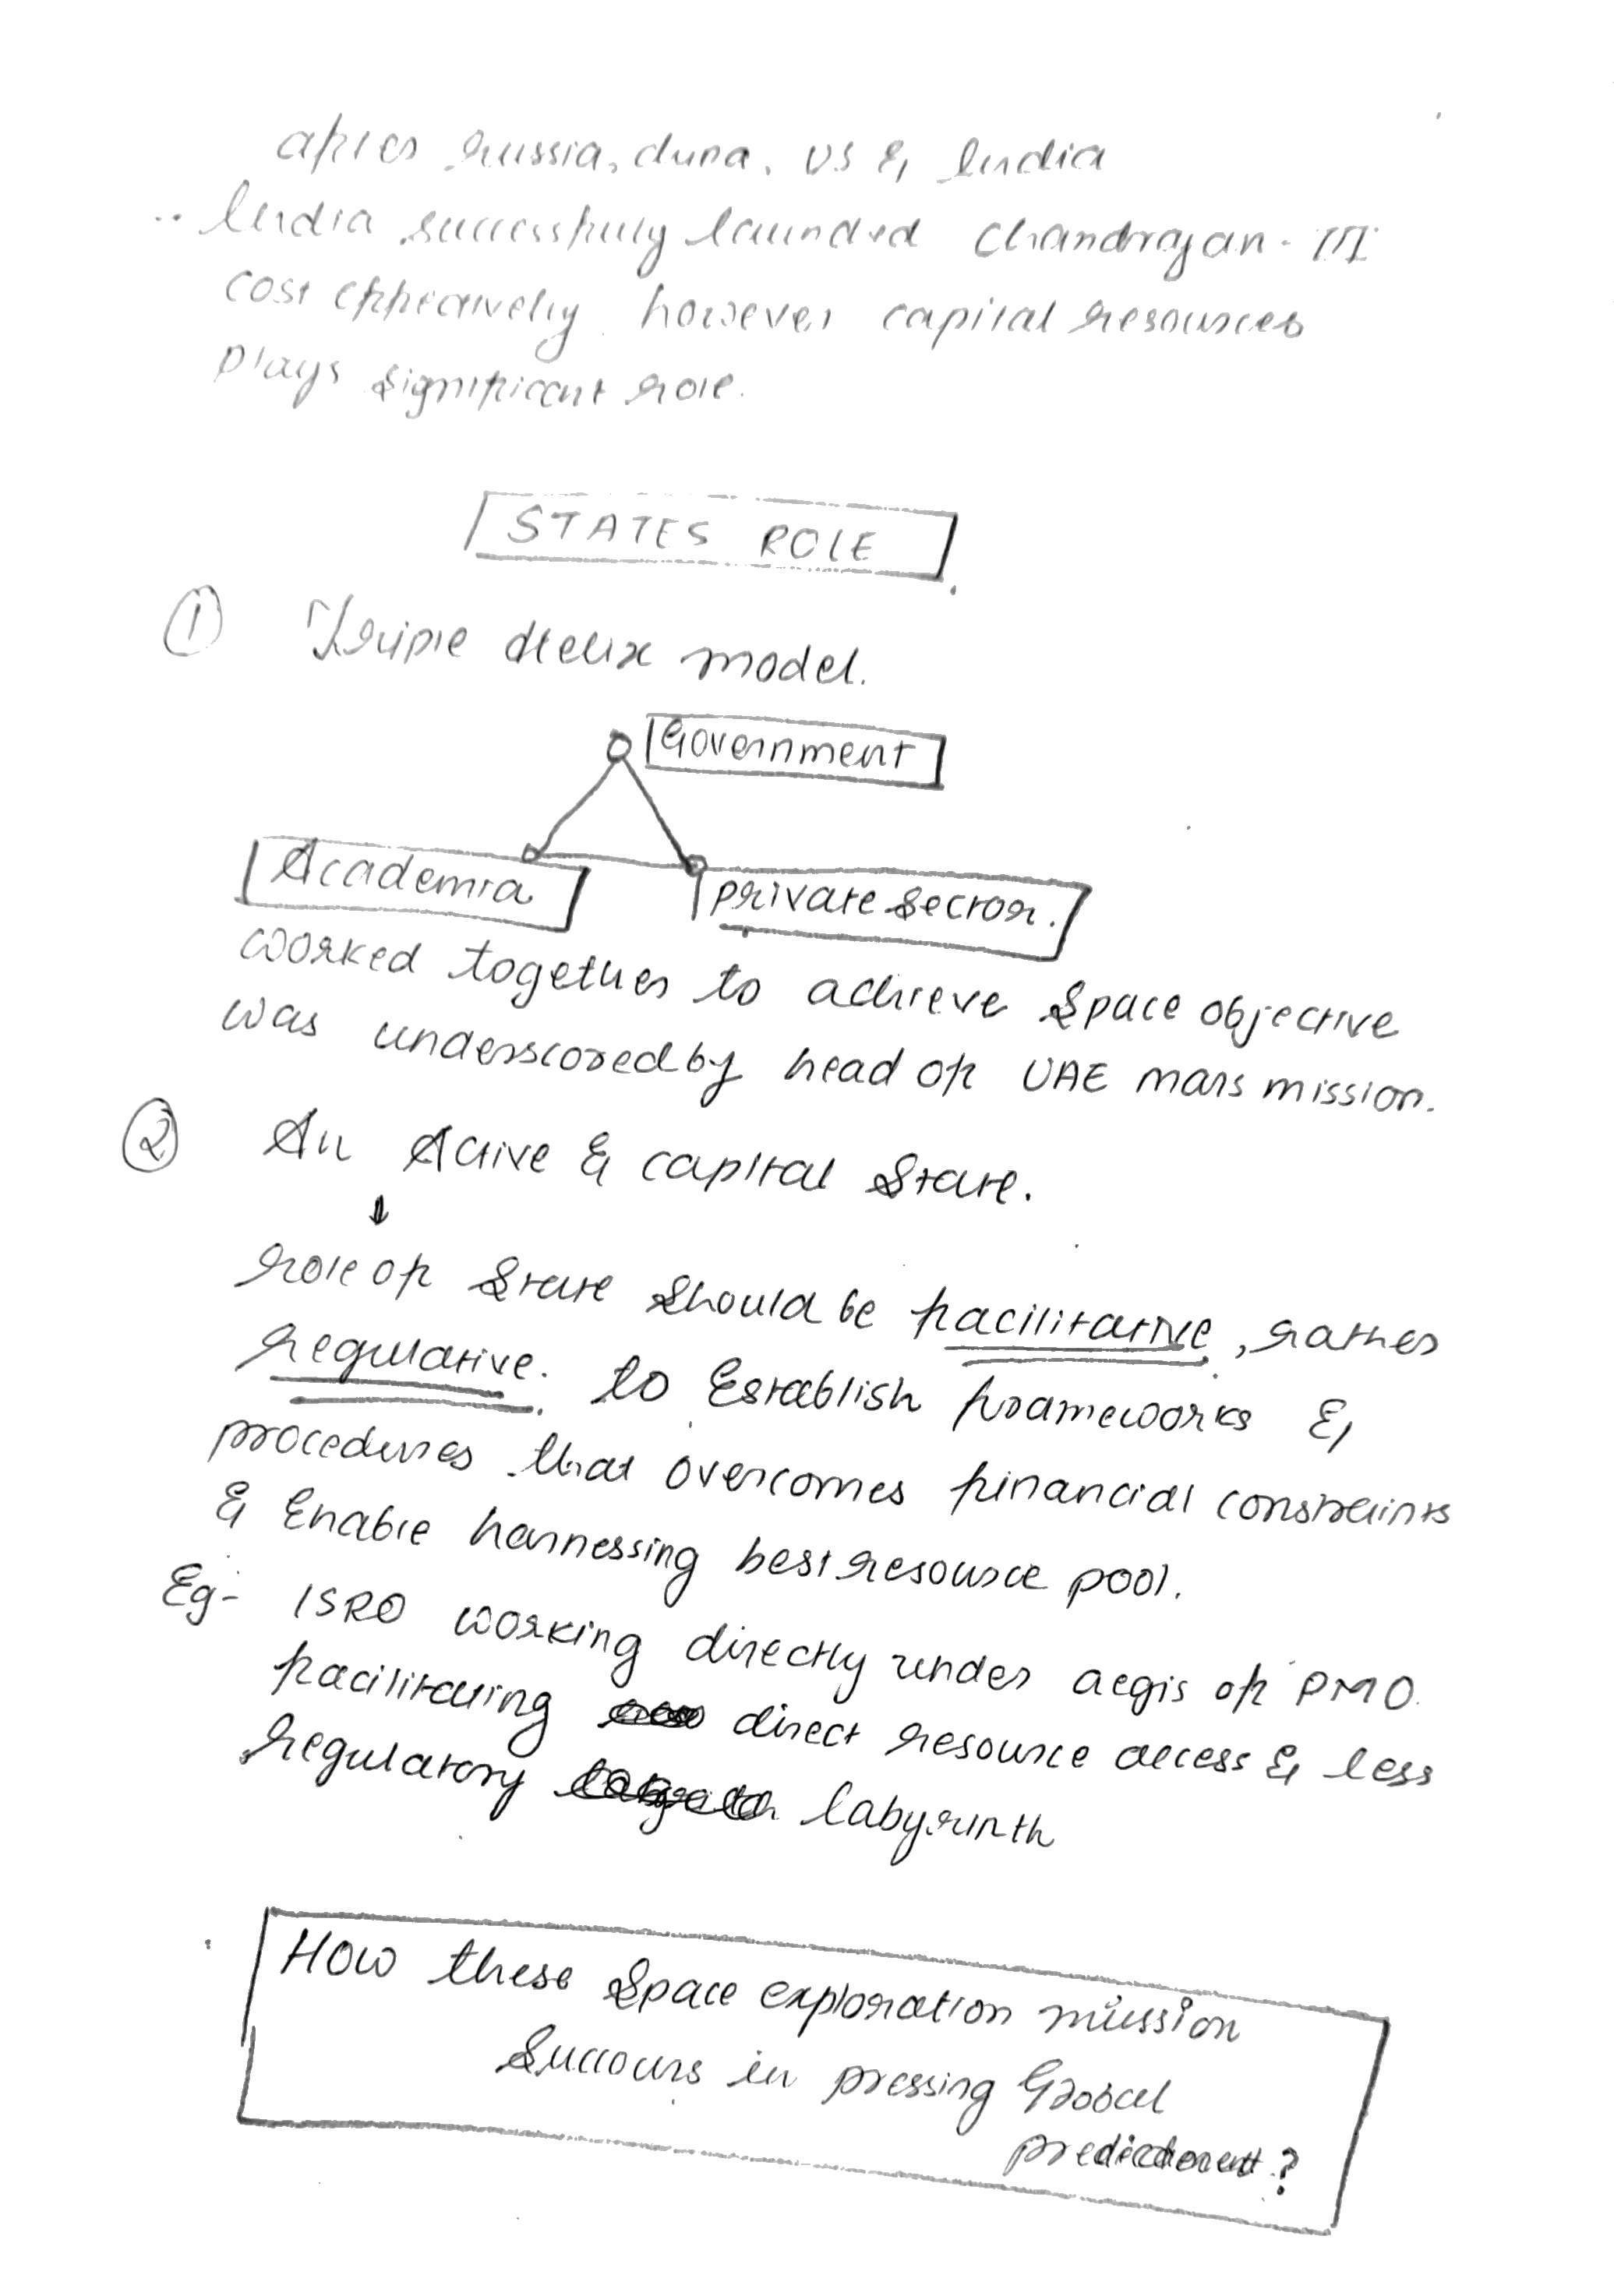 after Russia, China, US & India
∴ India successfully launched Chandrayan-III
cost effectively however capital resources
plays significant role.
STATES ROLE
① Triple Helix model.
Government
Academia
private sector.
worked together to achieve space objective
was underscored by head of UAE mars mission.
② An Active & capital State.
↓
role of State should be facilitative, rather
regulative. to Establish frameworks &
procedures that overcomes financial constraints
& Enable harnessing best resource pool.
Eg- ISRO working directly under aegis of PMO
facilitating direct resource access & less
regulatory labyrinth
How these space exploration mission
Succours in pressing Global
?